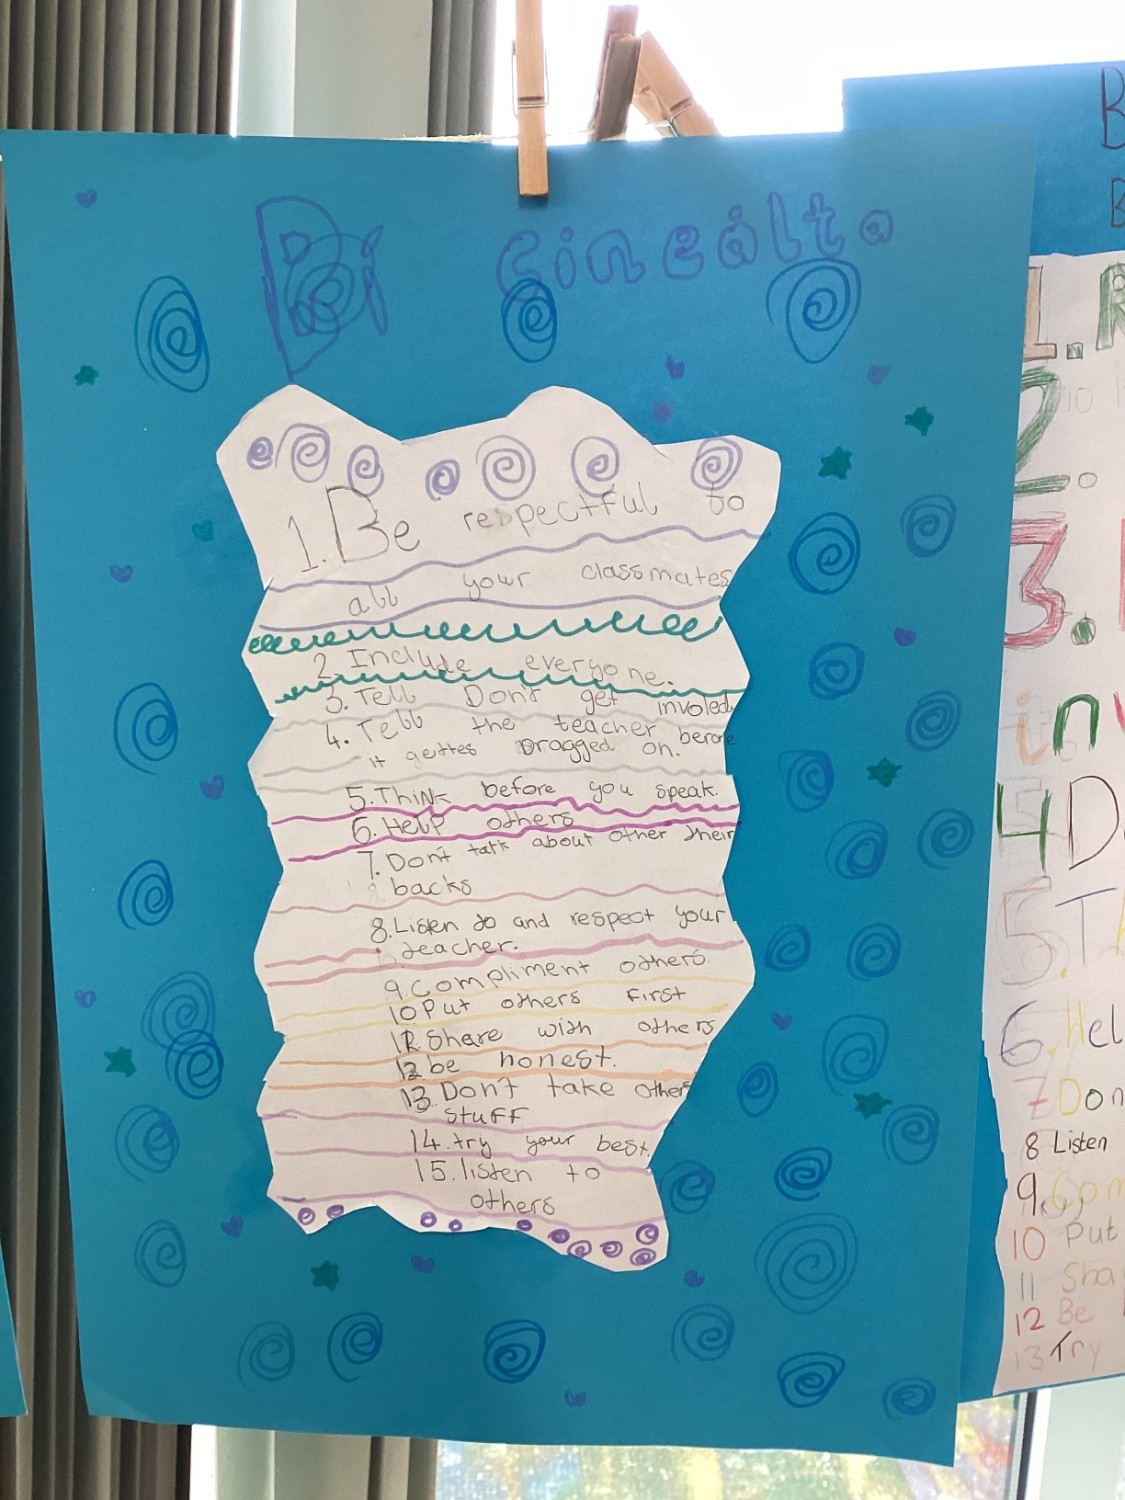 Bí Cineálta
1. Be respectful to
all your classmates
2. Include everyone.
3. Tell Don't get involed
4. Tell the teacher berore
it gettes Dragged on.
5. Think before you speak.
6. Help others
7. Don't talk about other their
backs
8. Listen to and respect your
teacher.
9. compliment others.
10 Put others first
11. Share with others
12 be honest.
13. Don't take others
stuff
14. try your best.
15. listen to
others
B
B
1. R
2.
3.
inv
4 D
5. T
6. Hel
7 Don
8 Listen
9. Com
10 Put
11 Sha
12 Be
13 Try